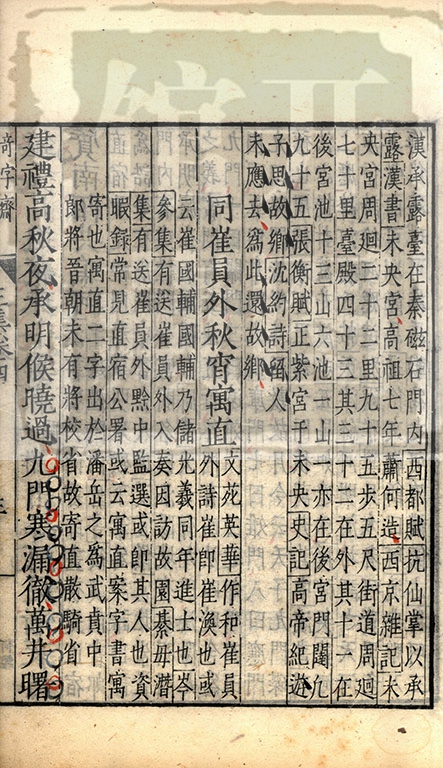 漢承露臺在秦磁石門內西都賦抗仙掌以承
露漢書未央宮高祖七年蕭何造西京雜記未
央宮周廻二十二里九十五步五尺街道周廻
七十里臺殿四十三其三十二在外其十一在
後宮池十三山六池一山一亦在後宮門闥凡
九十五張衡賦正紫宮于未央史記高帝紀遊
子思故鄉沈約詩寄人
未應去為此還故鄉
同崔員外秋宵寓直
文苑英華作和崔員
外詩崔即崔渙也或
云崔國輔國輔乃儲光羲同年進士也岑
參集有送崔員外入奏因訪故園綦毋潛
集有送崔員外黔中監選或即其人也資
暇錄常見直宿公署或云寓直案字書寓
寄也寓直二字出於潘岳之為武賁中
郎將晉朝未有將校省故寄直散騎省
建禮高秋夜承明候曉過九門寒漏徹萬井曙